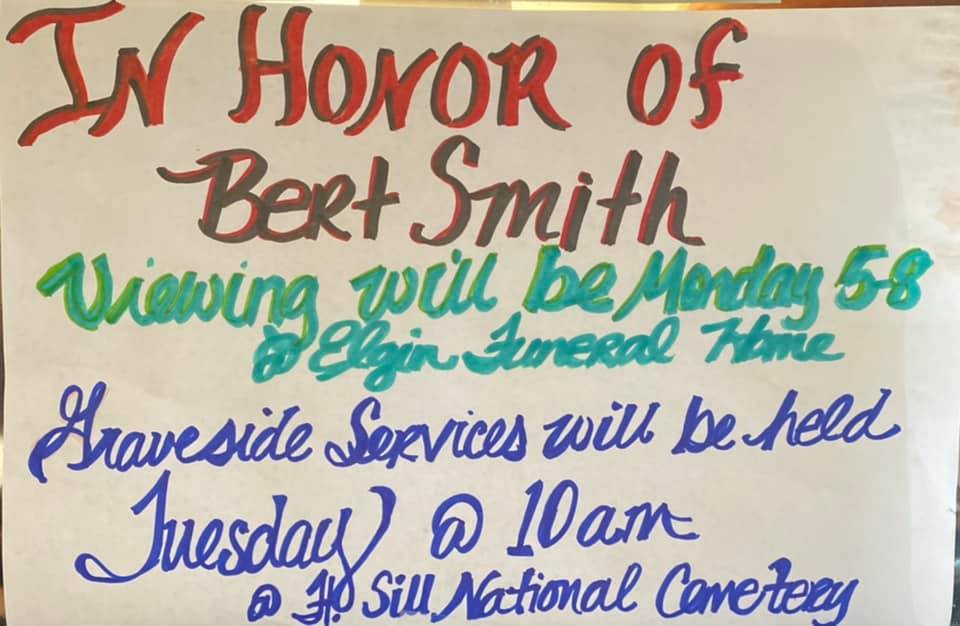 IN HONOR Of
Bert Smith
Viewing will be Monday 5-8
@ Elgin Funeral Home
Graveside Services will be held
Tuesday @ 10am
@ Ft. Sill National Cemetery